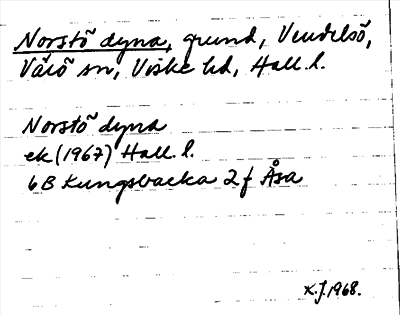 Norstö dyna, grund, Vendelsö,
Värö sn, Viske hd, Hall. l.
Norstö dyna
ek (1967) Hall. l.
6B Kungsbacka 2 f Åsa
K.J. 1968.